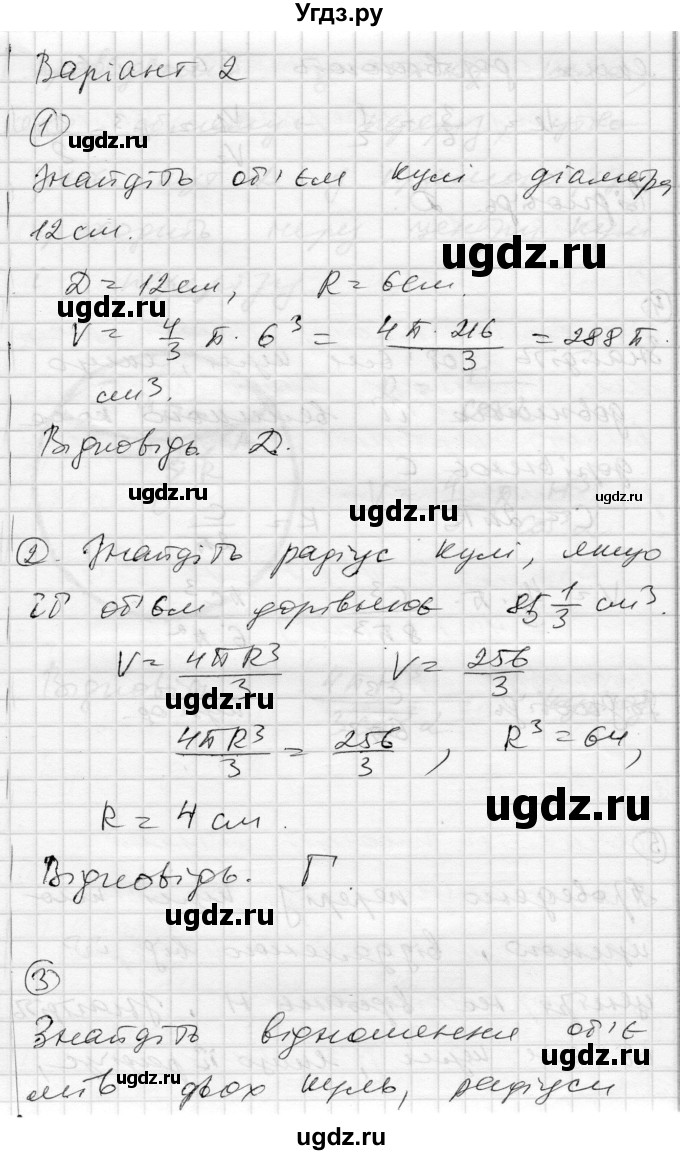 Угдз.ру
Варіант 2
1
ugdz.ru
Знайдіть об'єм кулі діаметра
12 см.
ugdz.ru
D = 12 см, R = 6 см.
ugdz.ru
V = 4/3 π · 6³ = 4π · 216 / 3 = 288π
см³.
Відповідь. Д.
ugdz.ru ugdz.ru ugdz.ru
2. Знайдіть радіус кулі, якщо
її об'єм дорівнює 85 1/3 см³.
V = 4πR³/3 V = 256/3
ugdz.ru
4πR³/3 = 256/3, R³ = 64,
ugdz.ru
R = 4 см.
Відповідь. Г
ugdz.ru
3
Знайдіть відношення об'є
ugdz.ru
мів двох куль, радіуси
ugdz.ru
ugdz.ru